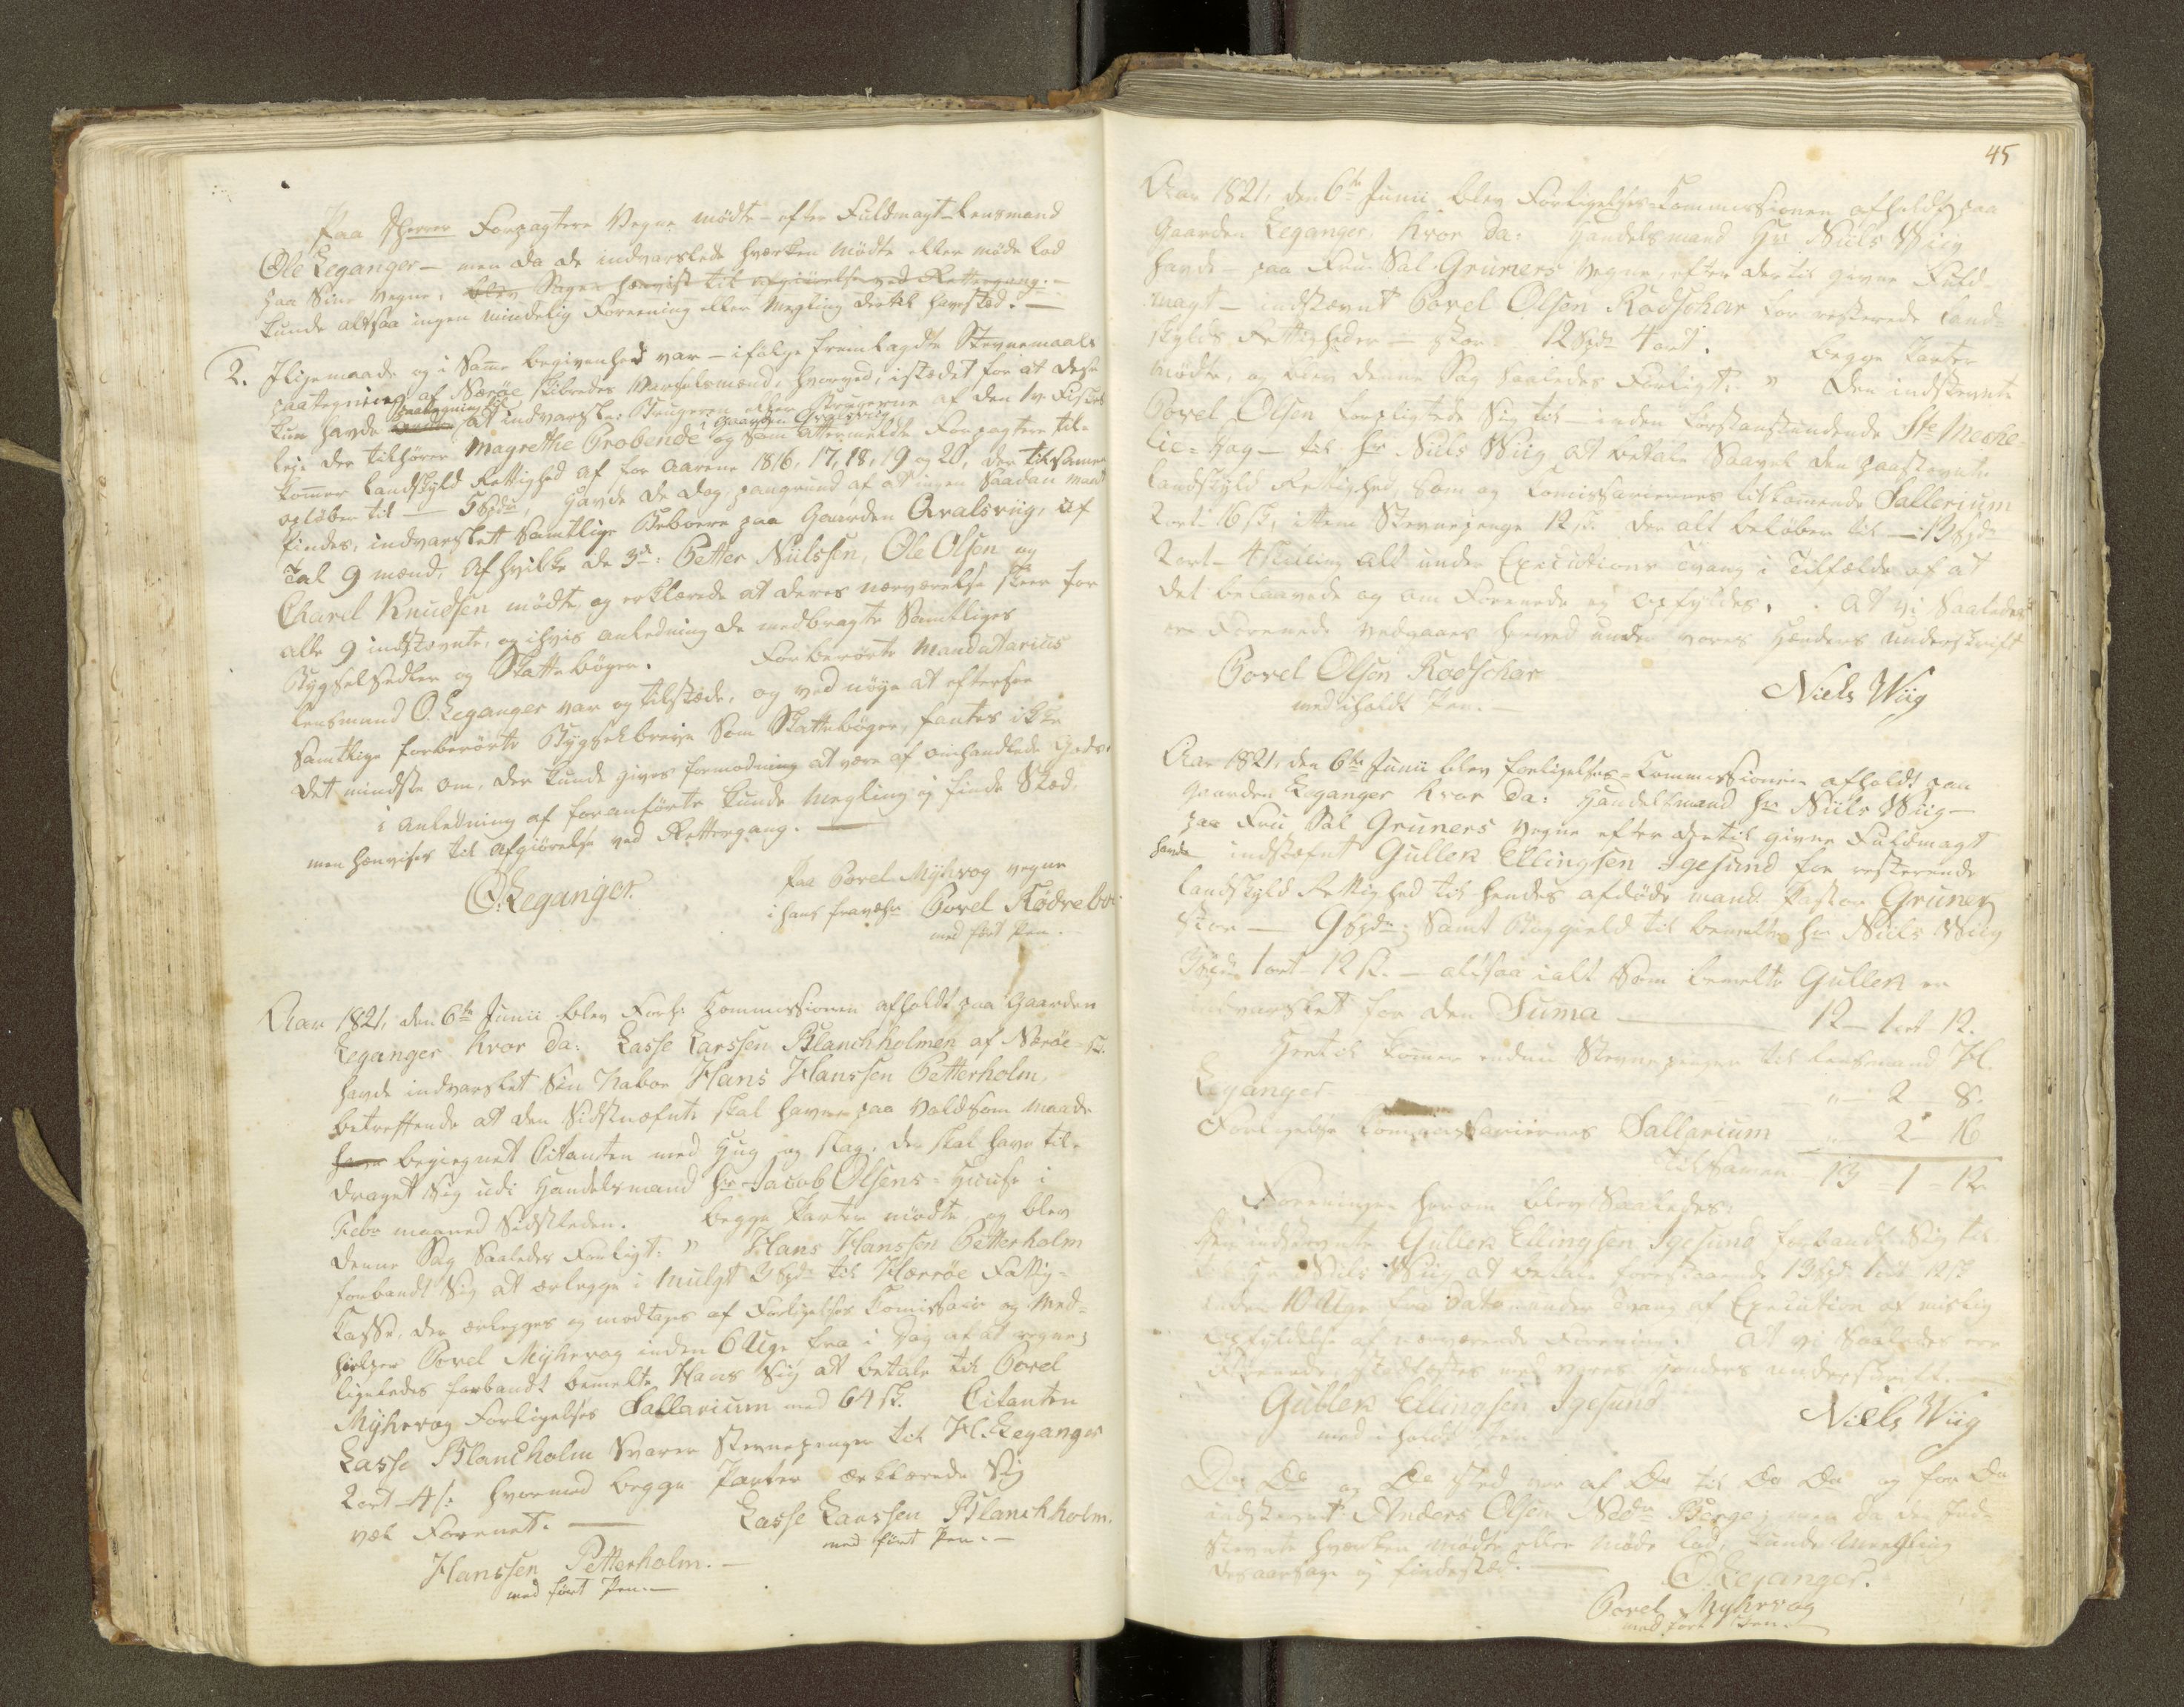 Paa Herrer Forpagtere Vegne mødte efter Fuldmagt Lensmand
Ole Leganger – men da de indvarslede hverken mødte eller møde lod
paa Sine Vegne, blev Sagen henvist til afgiørelse ved Rettergang. –
kunde altsaa ingen mindelig Foreening eller Megling dertil havested. –
2. Iligemaade og i Samme begivenhed var – ifølge fremlagdte Stevnemaals
paategning af Nærøe Skibredes Varselsmænd, hvorved, istedet for at disse
paategning til
kun havde at indvarsle: Brugeren eller Brugerne af den
i Gaarden Qvalsviig
leje der tilhører Magrethe Brobende og Som attermeldte Forpagtere til-
kommer Landskyld Rettighed af for Aarene 1816, 17, 18, 19 og 20, der tilsamen
opløber til — 5 Spdr, havde de dog, paagrund af at ingen Saadan Mand
findes, indvarslett Samtlige Beboere paa Gaarden Qvalsviig, af
Tal 9 mænd; Af hvilke de 3de: Petter Niilssen, Ole Olsen og
Chavel Knudsen mødte, og erklærede at deres nærværelse skeer for
alle 9 indstevnte, og ihvis anledning de medbragte Samtliges
Bygselsedler og Skattebøger. Forberørte Mandatarius
Lensmand O. Leganger var og tilstede, og ved nøye at eftersee
Samtlige forberørte Bygselbreve Som Skattebøger, fantes ikke
det mindste om, der kunde gives formodning at være af omhandlede Gods.
i Anledning af foranførte kunde Megling ej finde Sted,
men henvises til Afgiørelse ved Rettergang. —
O. Leganger.
Paa Povel Myhrvog vegne
i hans fravær Povel Kødrebøe
med ført Pen.
Aar 1821, den 6te Junii blev Forl: Commissionen afholdt paa Gaarden
Leganger hvor da: Lasse Larssen Blanchholmen af Nærøe
havde indvarslet Sin Nabor Hans Hanssen Petterholm,
betreffende at den Sidstnæfnte skal havee paa Voldsom maade
have begiegnet Citanten med Hug og slag, der skal have til-
draget Sig udi Handelsmand Hr Jacob Olsens Huuse i
Febr maaned Sidstleden. begge Parter mødte, og blev
denne Sag Saaledes Forligt: " Hans Hanssen Petterholm
forbandt Sig at erlegge i Mulgt 3 Spdr til Nærøe Fattig-
Casse, der erlegges og modtages af Forligelses Comissair og Med-
hielper Povel Myhrvog inden 6 Uger fra i Dag af at regne;
ligeledes forbandt bemelte Hans Sig at betale til Povel
Myhrvog Forligelses Sallarium med 64 sk. Citanten
Lasse Blancholm Svarer Stevnepenger til H. Leganger
2 ort – 4 s: hvormed begge Parter erklærede Sig
vel Forenet. —
Lasse Larssen Blanchholm.
med ført Pen. –
Hanssen Petterholm. –
med ført Pen. —
45
Aar 1821, den 6te Junii blev Forligelses-Commissionen afholdt paa
Gaarden Leganger, hvor da: Handelsmand Hr Niels Wiig
havde – paa Frue Sal. Gruners Vegne, efter dertil given Fuld-
magt – indstævnt Povel Olsen Rødschar for resterede Land-
skylds Rettigheder – stor 12 Spdr 4 ort. begge Parter
mødte, og blev denne Sag Saaledes Forligt: " Den indstevnte
Povel Olsen forpligtede Sig til – inden førstanstundende Ste Meche-
lie-Dag – til Hr Niels Wiig at betale Saavel den paastevnte
Landskyld Rettighed, som og Comissariernes tilkomende Sallerium
2 ort 16 sk, ittem Stevnepenge 12 s. der alt beløber til — 13 Spdr
2 ort – 4 skilling alt under Executions tvang i Tilfælde af at
det belaavede og om Forenede ej opfyldes. At vi Saaledes
ere Forenede vedgaaes herved under vores Hænders underskrift
Povel Olsen Rødschar
med iholdt Pen. —
Niels Wiig
Aar 1821, den 6te Junii blev forligelses-Commissionen afholdt paa
Gaarden Leganger hvor da: Handelsmand Hr Niils Wiig –
paa Frue Sal Gruners Vegne efter dertil given Fuldmagt
havde indstefnt Gullek Ellingsen Igesund for resterende
Landskyld Rettighed til hendes afdøde mand Pastor Gruner
stor — 9 Spdr; Samt Bøggield til bemelte Hr Niels Wiig
3 Spdr 1 ort – 12 s. – altsaa ialt Som bemelte Gullek er
indvarslet for den Suma — 12 – 1 ort 12.
Hertil kommer endnu Stevnepenger til Lensmand H.
Leganger — " – 2 – 8.
Forligelses Commissariernes Sallarium " 2 – 16
tilsamen 13 – 1 – 12
Foreningen herom blev Saaledes:
Den indstevnte Gullek Ellingsen Igesund forbandt Sig til
Hr Niels Wiig at betale forestaaende 13 Spdr 1 ort 12 s
inden 10 Uger fra Dato under Tvang af Execution af mislig
Opfyldelse af nærværende Forening. At vi Saaledes ere
Forenede, stadfæstes med vores hænders underskrift. —
Gullek Ellingsen Igesund
med iholdt Pen
Niels Wiig
og sted var af til og for
indstevnt Anders Olsen Nedre Berge; men da den Ind-
stevnte hverken mødte eller møde lod, kunde Megling
desaarsage ej finde Sted. —
O. Leganger.
Povel Myhrvog
med ført Pen. —